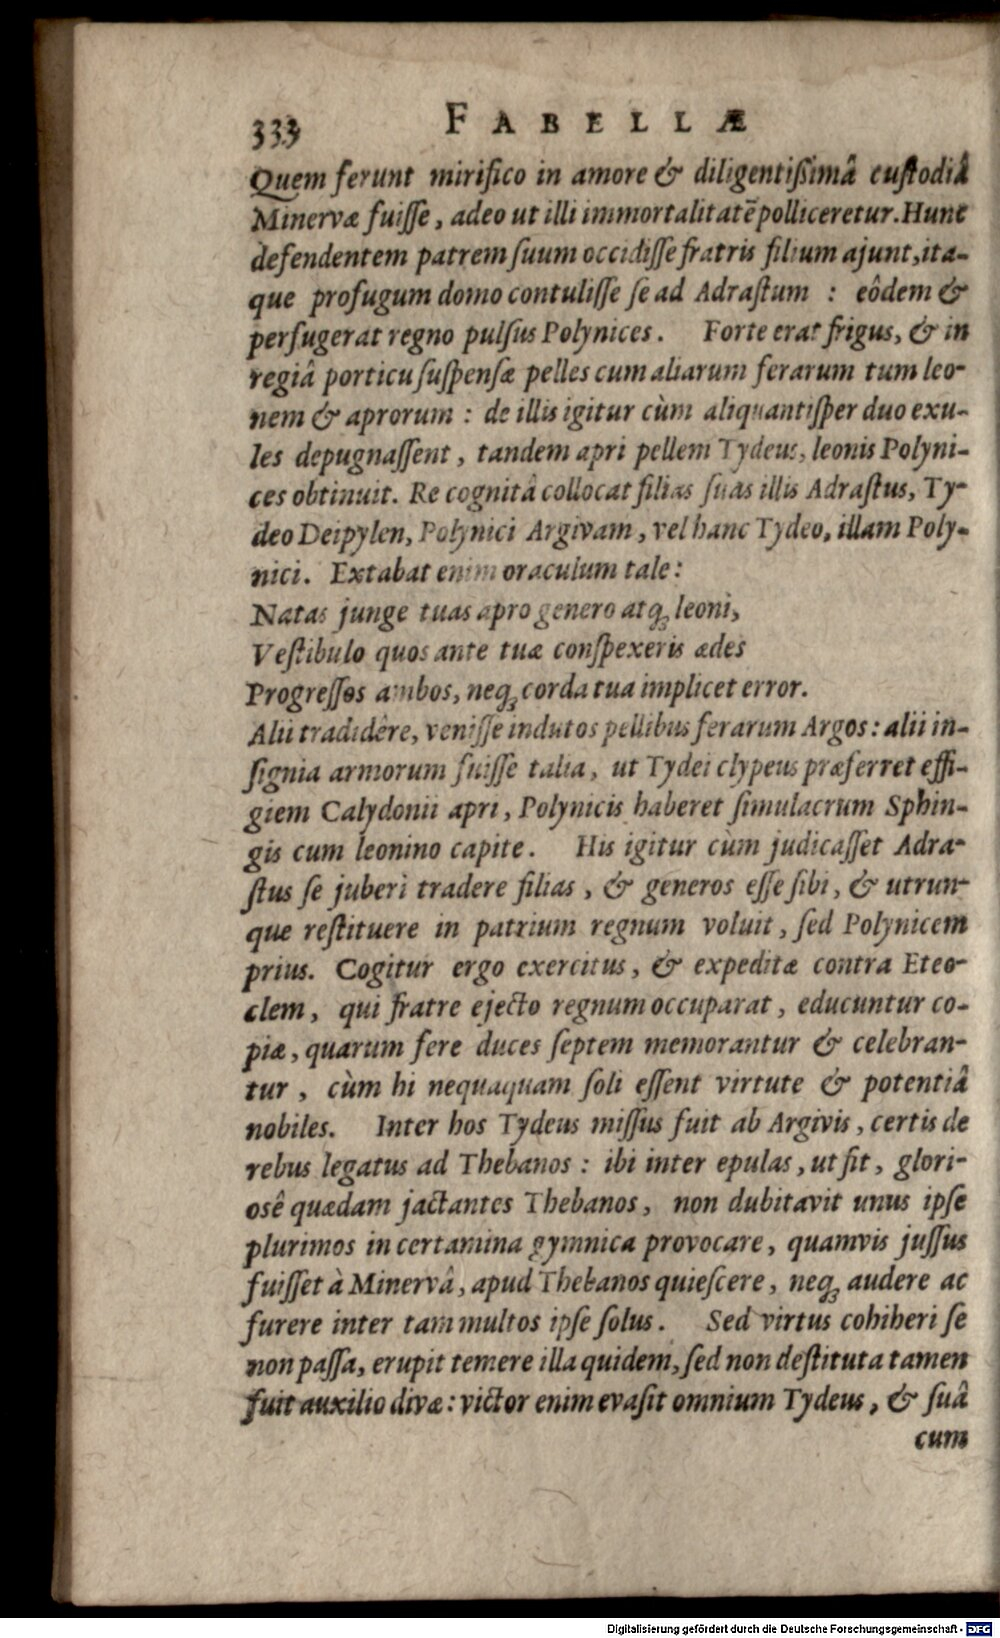 333 FABELLÆ
Quem ferunt mirifico in amore & diligentißimâ cuſtodiâ
Minervæ fuiſſe, adeo ut illi immortalitatē polliceretur. Hunc
defendentem patrem ſuum occidiſſe fratris filium ajunt, ita-
que profugum domo contuliſſe ſe ad Adraſtum : eôdem &
perfugerat regno pulſus Polynices. Forte erat frigus, & in
regiâ porticu ſuſpenſæ pelles cum aliarum ferarum tum leo-
nem & aprorum : de illis igitur cùm aliquantiſper duo exu-
les depugnaſſent, tandem apri pellem Tydeus, leonis Polyni-
ces obtinuit. Re cognitâ collocat filias ſuas illis Adraſtus, Ty-
deo Deipylen, Polynici Argivam, vel hanc Tydeo, illam Poly-
nici. Extabat enim oraculum tale:
Natas junge tuas apro genero atqꝫ leoni,
Veſtibulo quos ante tuæ conſpexeris ædes
Progreſſos ambos, neqꝫ corda tua implicet error.
Alii tradidêre, veniſſe indutos pellibus ferarum Argos: alii in-
ſignia armorum fuiſſe talia, ut Tydei clypeus præferret effi-
giem Calydonii apri, Polynicis haberet ſimulacrum Sphin-
gis cum leonino capite. His igitur cùm judicaſſet Adra-
ſtus ſe juberi tradere filias, & generos eſſe ſibi, & utrun-
que reſtituere in patrium regnum voluit, ſed Polynicem
prius. Cogitur ergo exercitus, & expeditæ contra Eteo-
clem, qui fratre ejecto regnum occuparat, educuntur co-
piæ, quarum fere duces ſeptem memorantur & celebran-
tur, cùm hi nequaquam ſoli eſſent virtute & potentiâ
nobiles. Inter hos Tydeus miſſus fuit ab Argivis, certis de
rebus legatus ad Thebanos : ibi inter epulas, ut fit, glori-
oſê quædam jactantes Thebanos, non dubitavit unus ipſe
plurimos in certamina gymnica provocare, quamvis juſſus
fuiſſet à Minervâ, apud Thebanos quieſcere, neqꝫ audere ac
furere inter tam multos ipſe ſolus. Sed virtus cohiberi ſe
non paſſa, erupit temere illa quidem, ſed non deſtituta tamen
fuit auxilio divæ: victor enim evaſit omnium Tydeus, & ſuâ
cum
Digitalisierung gefördert durch die Deutsche Forschungsgemeinschaft - DFG